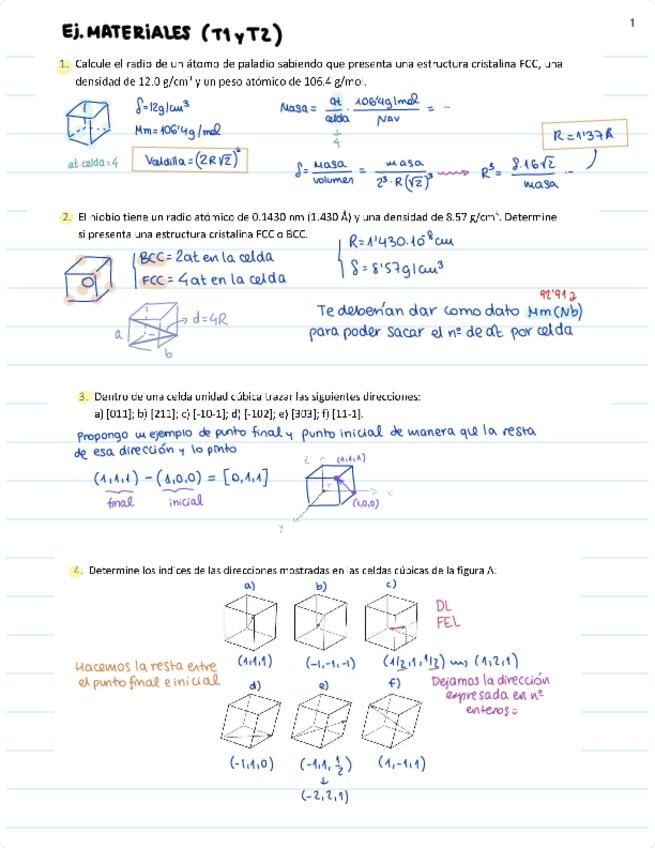 1
Ej. MATERIALES (T1 y T2)
1. Calcule el radio de un átomo de paladio sabiendo que presenta una estructura cristalina FCC, una
densidad de 12.0 g/cm³ y un peso atómico de 106.4 g/mol.
δ=12g/cm³
Mm=106'4g/mol
at celda=4
Masa = at/celda · 106'4g/mol/NAV = ...
4
δ = masa/volumen = masa/2³·R(√2)³ → R³ = δ·16√2/masa ...
R=1'37Å
2. El niobio tiene un radio atómico de 0.1430 nm (1.430 Å) y una densidad de 8.57 g/cm³. Determine
si presenta una estructura cristalina FCC o BCC.
BCC = 2at en la celda
FCC = 4at en la celda
R=1'430·10⁻⁸cm
δ=8'57g/cm³
d=4R
a
b
92'91g
Te deberían dar como dato Mm(Nb)
para poder sacar el nº de at por celda
3. Dentro de una celda unidad cúbica trazar las siguientes direcciones:
a) [011]; b) [211]; c) [-10-1]; d) [-102]; e) [303]; f) [11-1].
Propongo un ejemplo de punto final y punto inicial de manera que la resta
de esa dirección y lo pinto
(1,1,1) - (1,0,0) = [0,1,1]
final inicial
z
(1,1,1)
x
(1,0,0)
y
4. Determine los índices de las direcciones mostradas en las celdas cúbicas de la figura A:
a) b) c)
DL
FEL
Hacemos la resta entre
el punto final e inicial
(1,1,1) (-1,-1,-1) (1/2,1,1/2) → (1,2,1)
Dejamos la dirección
expresada en nº
enteros
d) e) f)
(-1,1,0) (-1,1,1/2) (1,-1,1)
(-2,2,1)